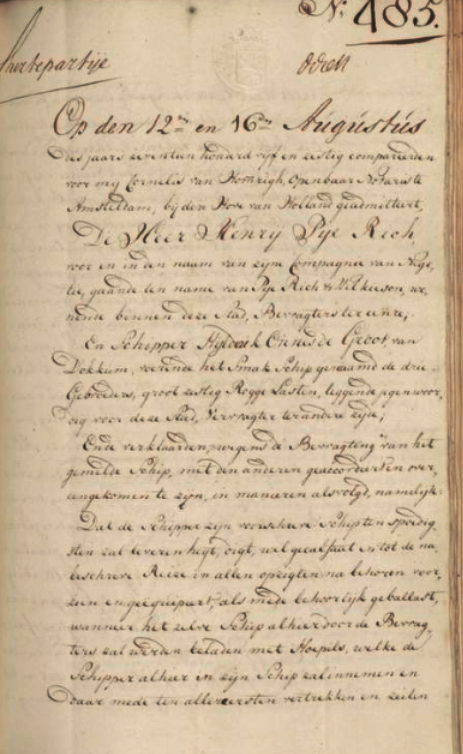 N: 485.
Chertepartije
Op den 12en en 16en Augustus
des jaars zeventien hondert vijf en zestig compareerden
voor my Cornelis van Homrigh, Openbaar Notaris te
Amsteldam, bij den Hove van Holland geadmitteert,
De Heer Henry Pye Rich,
voor en in den naam van zijne Compagnie van Nego,,
tie, gaande ten name van Pye Rich & Wilkieson, wo,,
nende binnen deze Stad, Bevragters ter eenre;
En Schipper Onnes de Groot, van
Dokkum, voerende het Smak Schip genaamd de drie
Gebroeders, groot zestig Rogge Lasten, leggende jegenwoor,,
dig voor deze Stad, Vervragter ter andere zijde;
Ende verklaarden, wegens de Bevragting van het
gemelde Schip, met den anderen geaccordeert en over,,
eengekomen te zijn, in manieren als volgd, namelijk:
Dat de Schipper zijn voorschreve Schip ten spoedig,,
sten zal leveren hegt, digt, wel gecalfaat en tot de na,,
beschreve Reize in allen opzigten na behoren voor,,
zien en geëquipeert, als mede behoorlijk geballast,
wanneer het zelve Schip alhier door de Bevrag,,
ters zal werden beladen met Hoepels, welke de
Schipper alhier in zijn Schip zal innemen en
daar mede ten allereersten vertrekken en zeilen